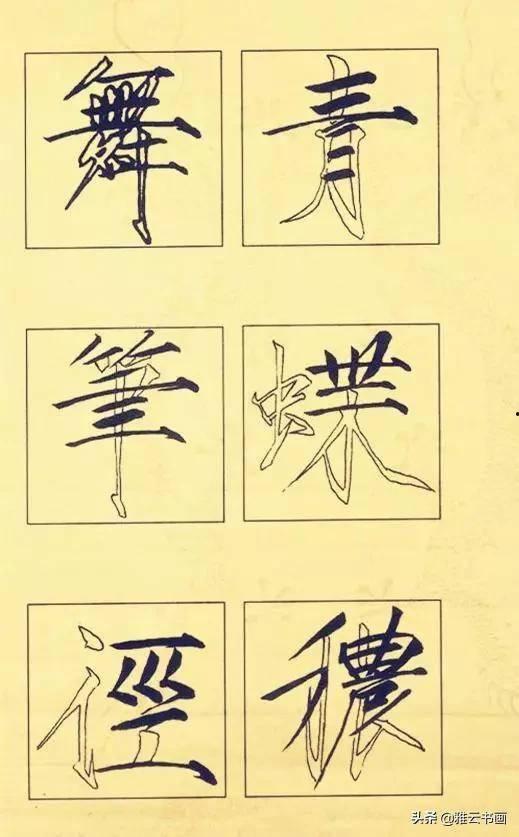 舞青
筆蝶
徑穠
头条 @雅云书画